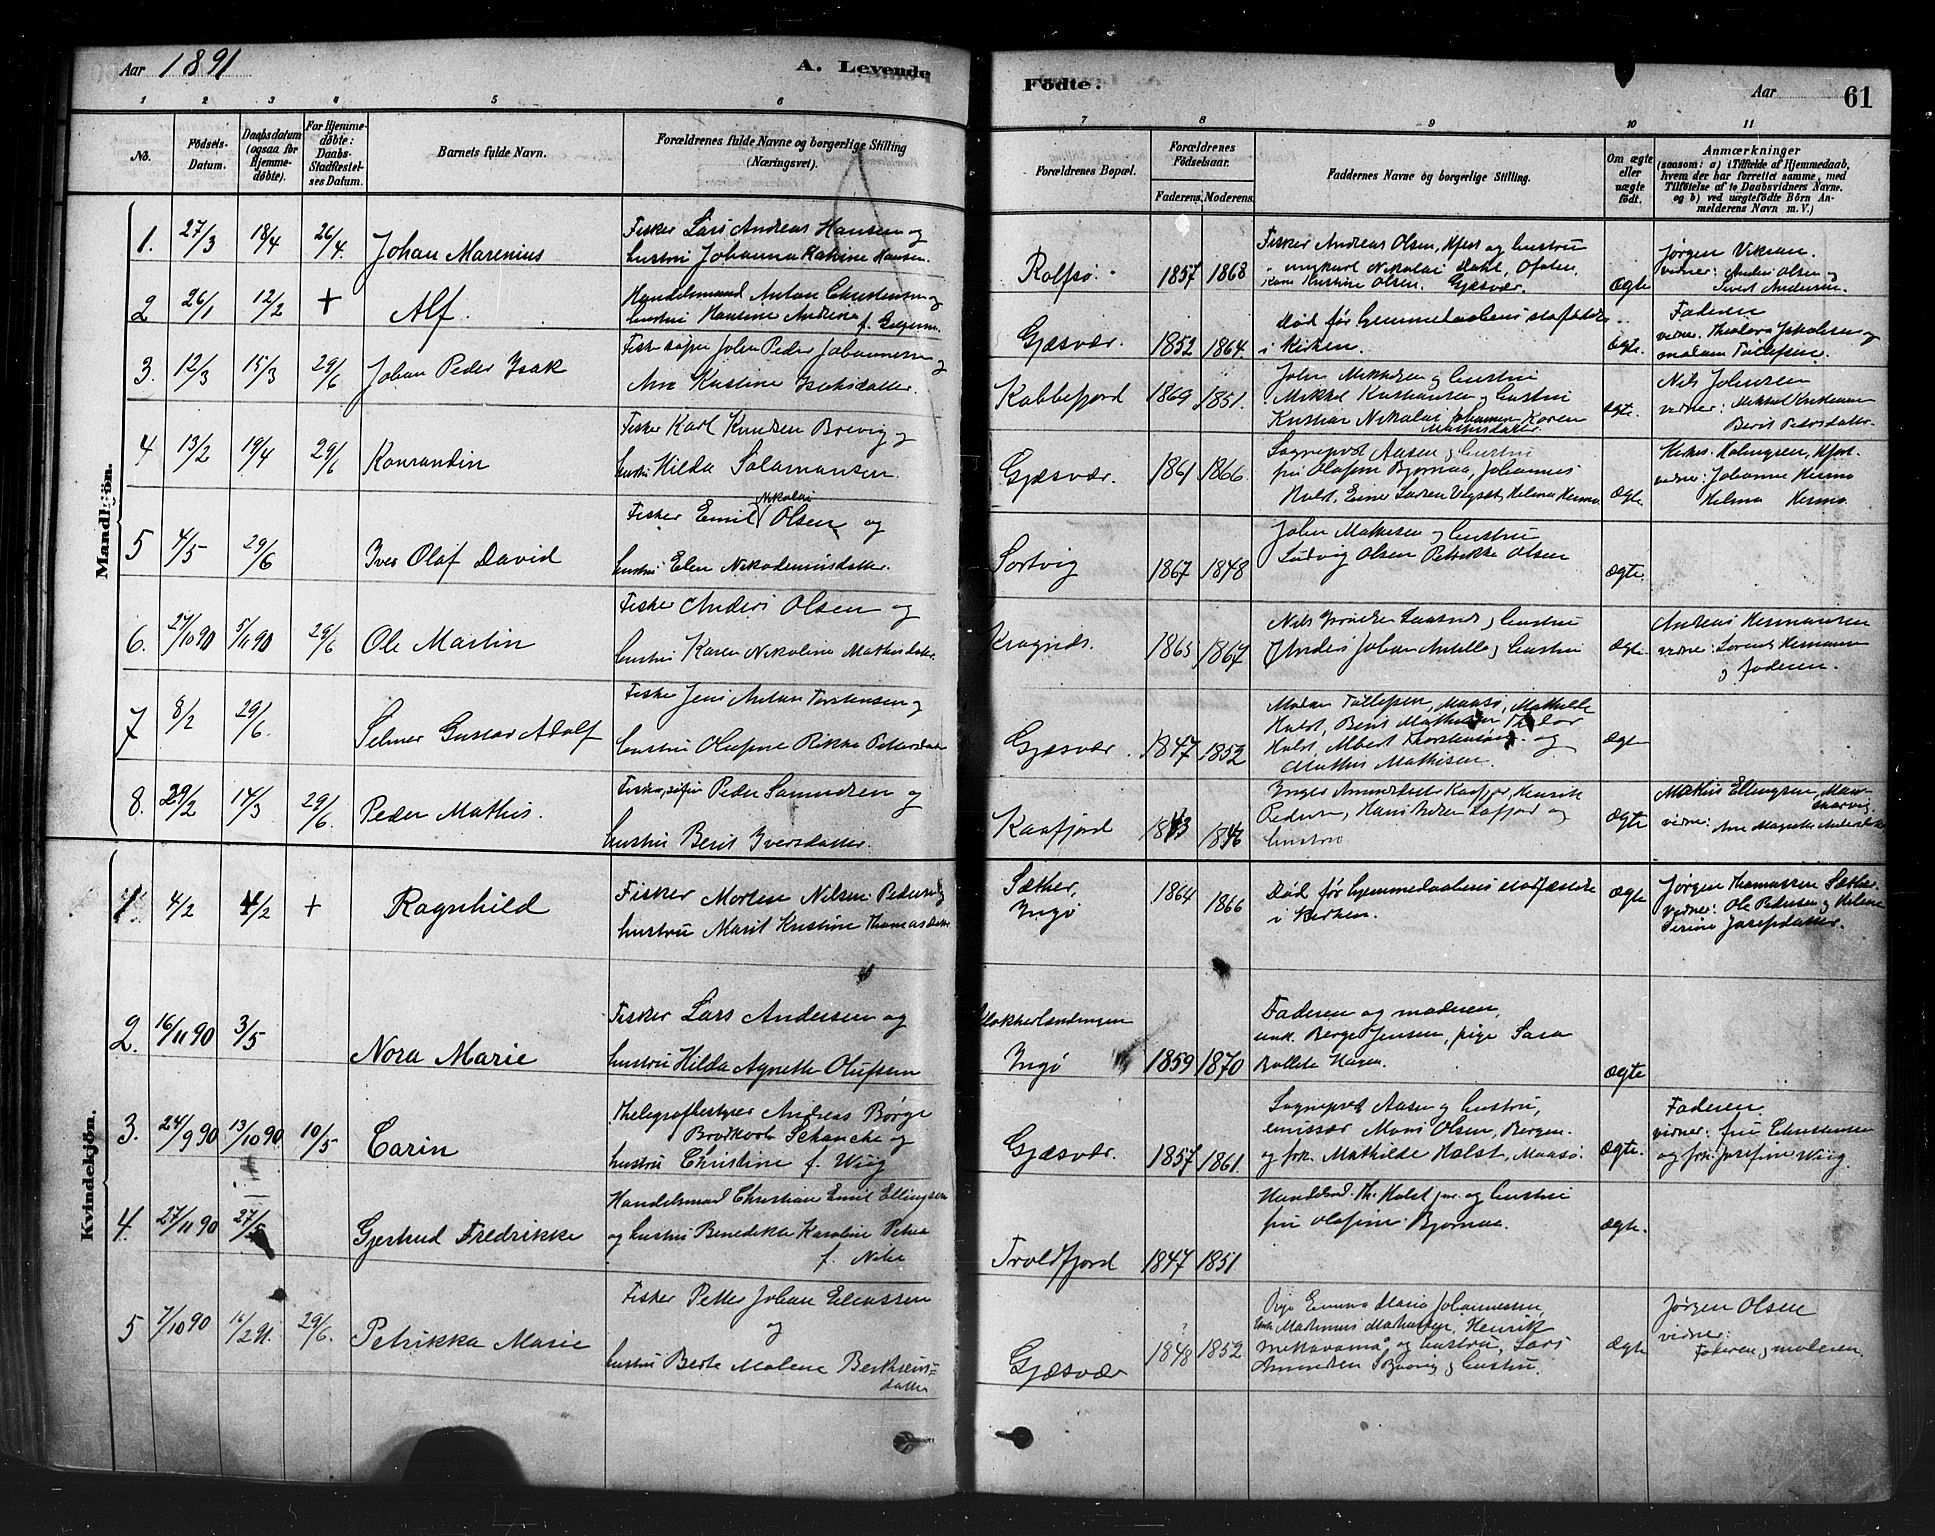 Aar 1891
A. Levende
Födte.
Aar
61
1 2 3 4 5 6 7 8 9 10 11
No.
Födsels-
Datum.
Daabsdatum
(ogsaa for
Hjemme-
döbte).
For Hjemme-
döbte:
Daabs-
Stadfæstel-
ses Datum.
Barnets fulde Navn.
Forældrenes fulde Navne og borgerlige Stilling
(Næringsvei).
Forældrenes Bopæl.
Forældrenes
Födselsaar.
Faderens. Moderens.
Faddernes Navne og borgerlige Stilling.
Om ægte
eller
uægte
födt.
Anmærkninger
(saasom: a) i Tilfælde af Hjemmedaab,
hvem der har forrettet samme, med
Tilföielse af to Daabsvidners Navne.
og b) ved uægtefödte Börn An-
melderens Navn m. V.)
Mandkjön.
1. 27/3 18/4 26/4. Johan Marenius
Fisker Lars Andreas Hansen og
hustru Johanna Katrine Hansen.
Rolfsö. 1857 1868
Fisker Andreas Olsen, Hfest og hustru
ungkarl Nikolai Dahl, Ofoten,
Kristine Olsen. Gjæsvær.
Ægte
Jørgen
vidner: Anders Olsen og
Sivert Andersen.
2 26/1 12/2 + Alf.
Handelsmand Anton Christensen og
hustru Hansine Andrea f.
Gjæsvær. 1852 1864.
Død før hjemmedaabens stadfæstelse
i Kirken.
Ægte.
Faderen
vidner: Theodora Jakobsen og
madam Tollefsen.
3. 12/3 15/3 29/6 Johan Peder Isak
Johan Peder Johannesen og
Ane Kristine Isaksdatter.
Kobbefjord 1869 1851.
John Mikkelsen og hustru
Mikkel Kristiansen og hustru
Kristian Nikolai Johannesen Karen
Mathisdatter.
Ægte.
Nils Johnsen
vidner: Mikkel Kristiansen
Berit Pedersdatter.
4 13/2 19/4 29/6 Konrandin
Fisker Karl Knudsen Brevig og
hustru Hilda Salamonsen.
Gjæsvær. 1861 1866.
Sogneprest Aasen og hustru
fru Olafine Bjørnaa, Johannes
Holst, Einer Larsen
Ægte
Holmgren, Hfest.
vidner: Johanne Hermo
Helma Hermo
5 4/5 29/6 Iver Olaf David
Fisker Emil Nikolai Olsen og
hustru Elen Nikodemusdatter.
Sortvig 1867 1848
John Mathisen og hustru
Ludvig Olsen Petrikke Olsen
Ægte.
6. 27/10 90 5/11 90 29/6 Ole Martin
Fisker Anders Olsen og
hustru Karen Nikoline Mathisdatter.
1865 1867
Anders Johan og hustru
Ægte
Andreas Hermansen
vidner: Lorents Hermansen
og Faderen.
7 8/2 29/6. Selmer Gustav Adolf
Fisker Jens Anton Torstensen og
hustru Olufine Rikka Pettersdatter
Gjæsvær. 1847 1852
Madam Tollefsen, Maasø, Mathilde
Holst, Berit Mathisen
Holst, Albert Thorstensen og
Mathis Mathisen.
Ægte
8. 29/2 14/3 29/6. Peder Mathis.
Peder Samuelsen og
hustru Berit Iversdatter.
Kaafjord 1843 1846
Inger Amundsdatter Kaafjord, Henrik
Pedersen, Hans og
hustru
Ægte
Mathis Ellingsen,
vidner: Ane Magrethe
Kvindekjön.
1. 4/2 4/2 + Ragnhild
Fisker Morten Nilsen Pedersen og
hustru Marit Kristine Thomasdatter
Sæther,
Ingø 1864 1866
Død før hjemmedaabens stadfæstelse
i Kirken.
Ægte
Jørgen Thomassen Sæther.
vidner: Ole Pedersen og Helene
Perine Josefsdatter.
2. 16/11 90 3/5 Nora Marie
Fisker Lars Andersen og
hustru Hilda Agnette Olufsen
Ingø 1859 1870
Faderen og moderen,
unk. Berger Jensen, pige Sara
Ægte
3. 24/9 90 13/10 90 10/5 Carin
Thelegrafbestyrer Andreas Børge
Brodtkorb Schanche og
hustru Christine f. Wiig
Gjæsvær. 1857 1861.
Sogneprest Aasen og hustru,
emissær Mons Olsen, Bergen.
og frk. Mathilde Holst, Maasø.
Ægte.
Faderen.
vidner: fru Christensen
og frk. Josefine Wiig.
4. 27/11 90 27/5 Gjertrud Fredrikke
Handelsmand Christian Emil Ellingsen
og hustru Benedikta Karoline Petrea
f.
Troldfjord 1847 1851
Th. Holst jnr. og hustru
fru Olafine Bjørnaa.
Ægte.
5 7/10 90 16/2 91. 29/6. Petrikka Marie
Fisker Petter Johan Eliassen
og
hustru Berte Malene
datter
Gjæsvær 1848 1852
Pige Emma Maria Johannesen,
Henrik
og hustru, Lars
Amundsen og hustru.
Ægte
Jørgen Olsen
vidner:
Faderen og moderen